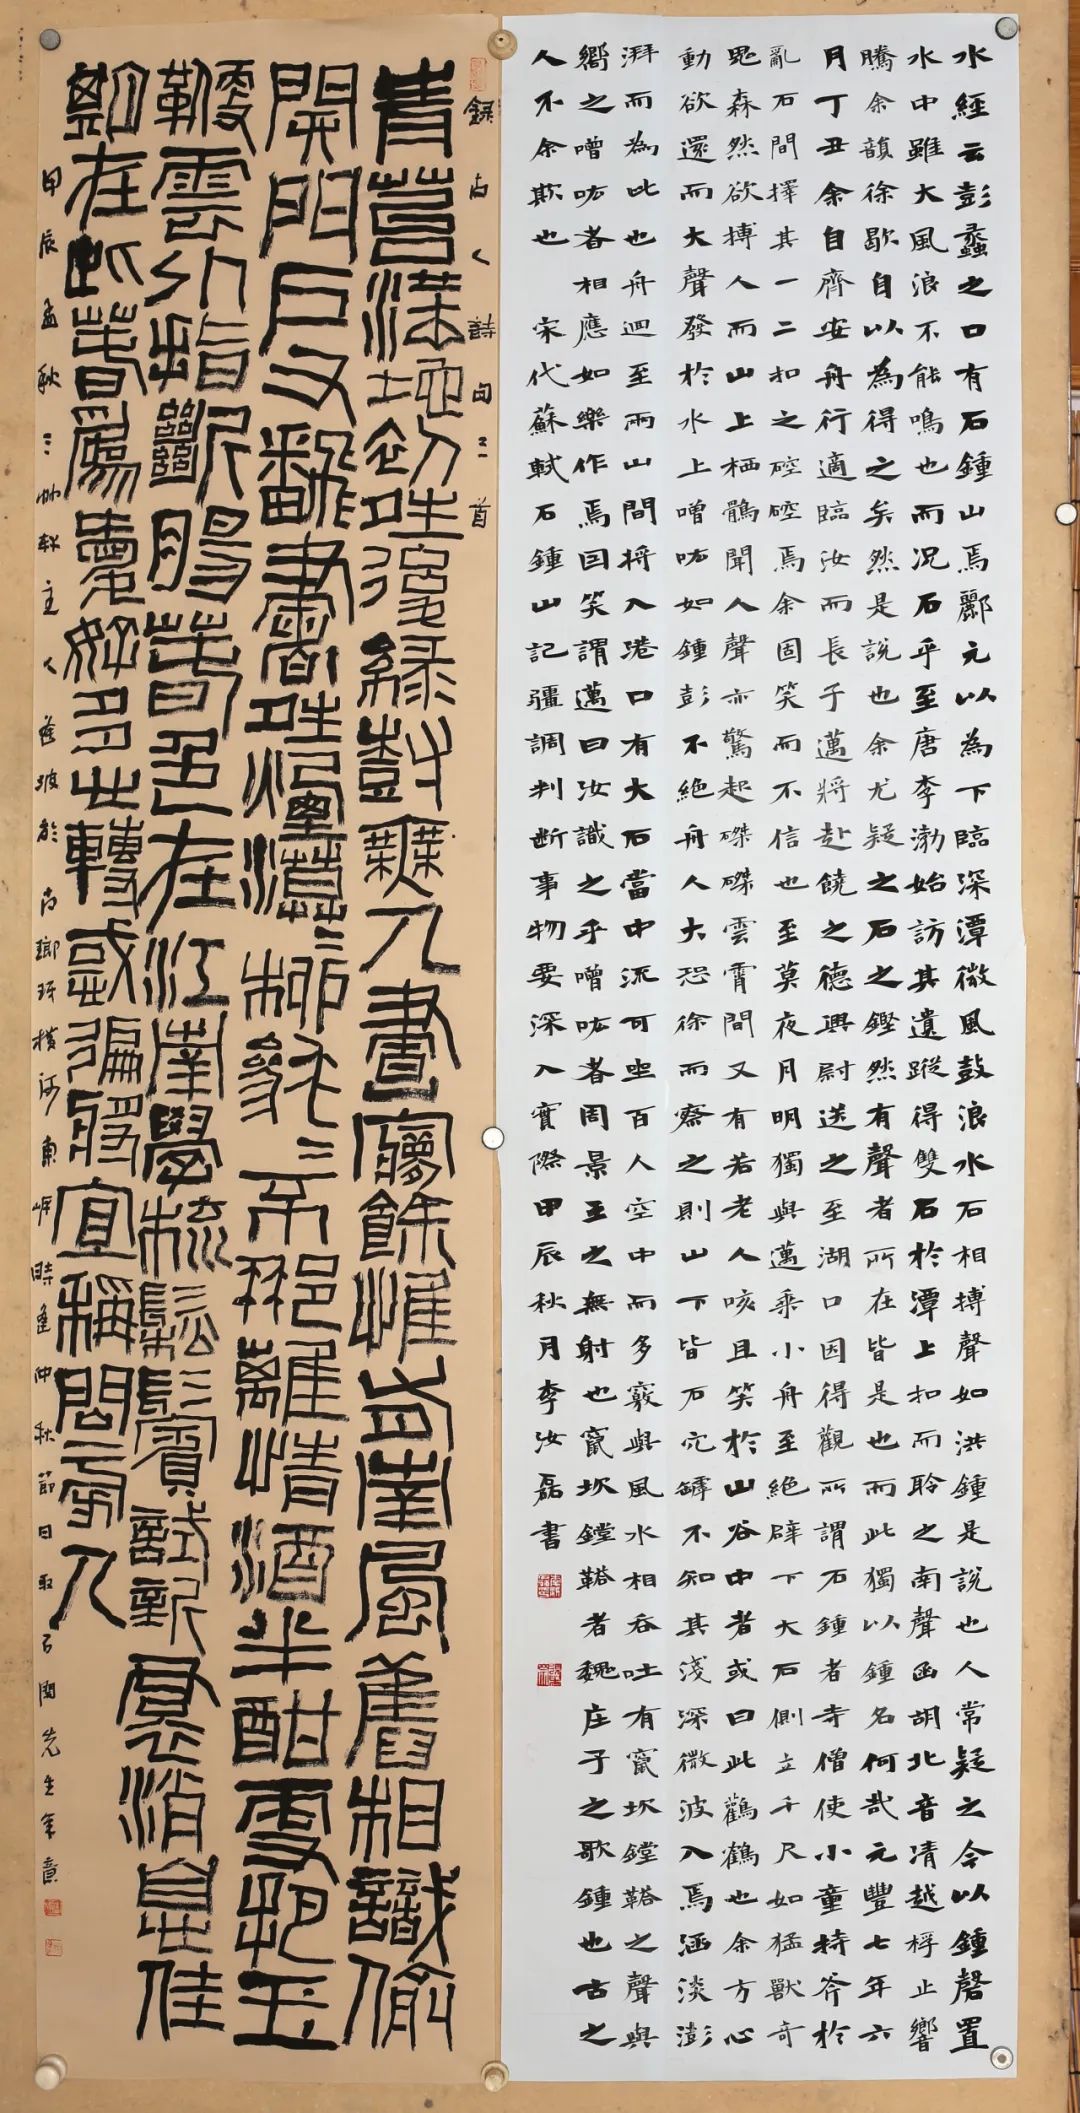 水經云彭蠡之口有石鍾山焉酈元以為下臨深潭微風鼓浪水石相搏聲如洪鍾是說也人常疑之今以鍾磬置
水中雖大風浪不能鳴也而況石乎至唐李渤始訪其遺蹤得雙石於潭上扣而聆之南聲函胡北音清越桴止響
騰余韻徐歇自以為得之矣然是說也余尤疑之石之鏗然有聲者所在皆是也而此獨以鍾名何哉元豐七年六
月丁丑余自齊安舟行適臨汝而長子邁將赴饒之德興尉送之至湖口因得觀所謂石鍾者寺僧使小童持斧於
亂石間擇其一二扣之硿硿焉余固笑而不信也至莫夜月明獨與邁乘小舟至絕壁下大石側立千尺如猛獸奇
鬼森然欲搏人而山上栖鶻聞人聲亦驚起磔磔雲霄間又有若老人咳且笑於山谷中者或曰此鸛鶴也余方心
動欲還而大聲發於水上噌吰如鍾彭不絕舟人大恐徐而察之則山下皆石穴罅不知其淺深微波入焉涵淡澎
湃而為此也舟迴至兩山間將入港口有大石當中流可坐百人空中而多竅與風水相吞吐有窾坎鏜鞳之聲與
嚮之噌吰者相應如樂作焉因笑謂邁曰汝識之乎噌吰者周景王之無射也窾坎鏜鞳者魏庄子之歌鍾也古之
人不余欺也 宋代蘇軾石鍾山記彊調判断事物要深入實際甲辰秋月李汝磊書
錄古人詩句三首
青苔滿地初晴後綠樹無人晝夢餘惟有南風舊相識偷
開門戶又翻書晴煙漠漠柳毿毿不那離情酒半酣更把玉
鞭雲外指斷腸春色在江南學梳鬆鬢試新裙消息佳
期在此春為愛好多心轉惑遍將宜稱問旁人
甲辰孟秋三艸軒主人蒼坡於古瑯玡橫河東岸時逢仲秋節日取先生筆意